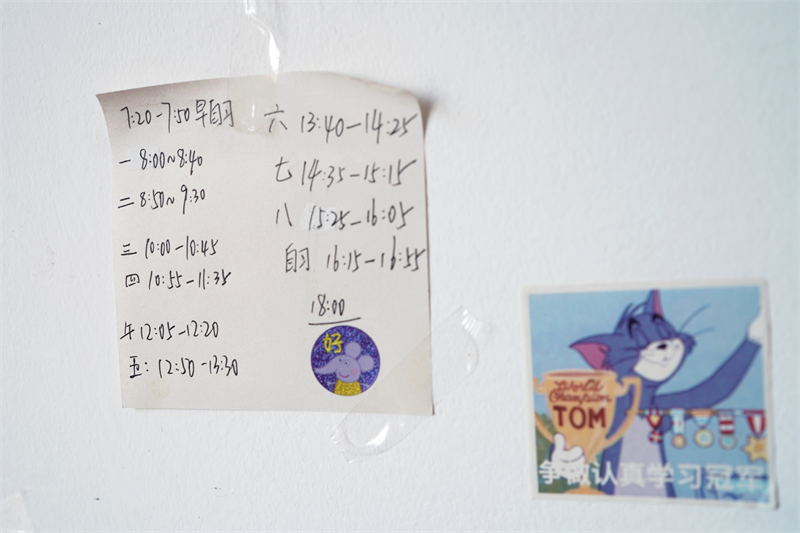 7:20-7:50 早自习
一 8:00~8:40
二 8:50~9:30
三 10:00-10:45
四 10:55-11:35
午 12:05-12:20
五: 12:50-13:30
六 13:40-14:25
七 14:35-15:15
八 15:25-16:05
自习 16:15-16:55
18:00
好
World
Champion
TOM
争做认真学习冠军